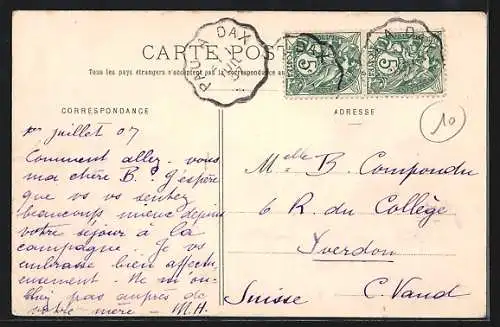 CARTE POST
Tous les pays étrangers n'acceptent pas la correspondance au
PAU A DAX
5c 5c
CORRESPONDANCE
ADRESSE
10
juillet 07
Comment allez-vous
ma chère B.? J'espère
que vs vs sentez
beaucoup mieux depuis
votre séjour à la
campagne. Je vs
embrasse bien affectu
eusement. Ne m'ou-
bliez pas auprès de
votre mère – M.H.
Melle B. Compondu
6 R. du Collège
Yverdon
Suisse C. Vaud